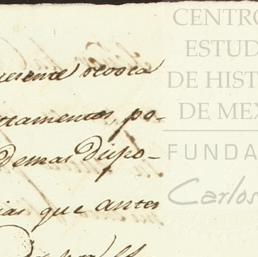 CENTRO
ESTUD
DE HIST
DE MEX
FUNDA
Carlos
revoca
tamentos, po-
demas dispo-
ias que antes